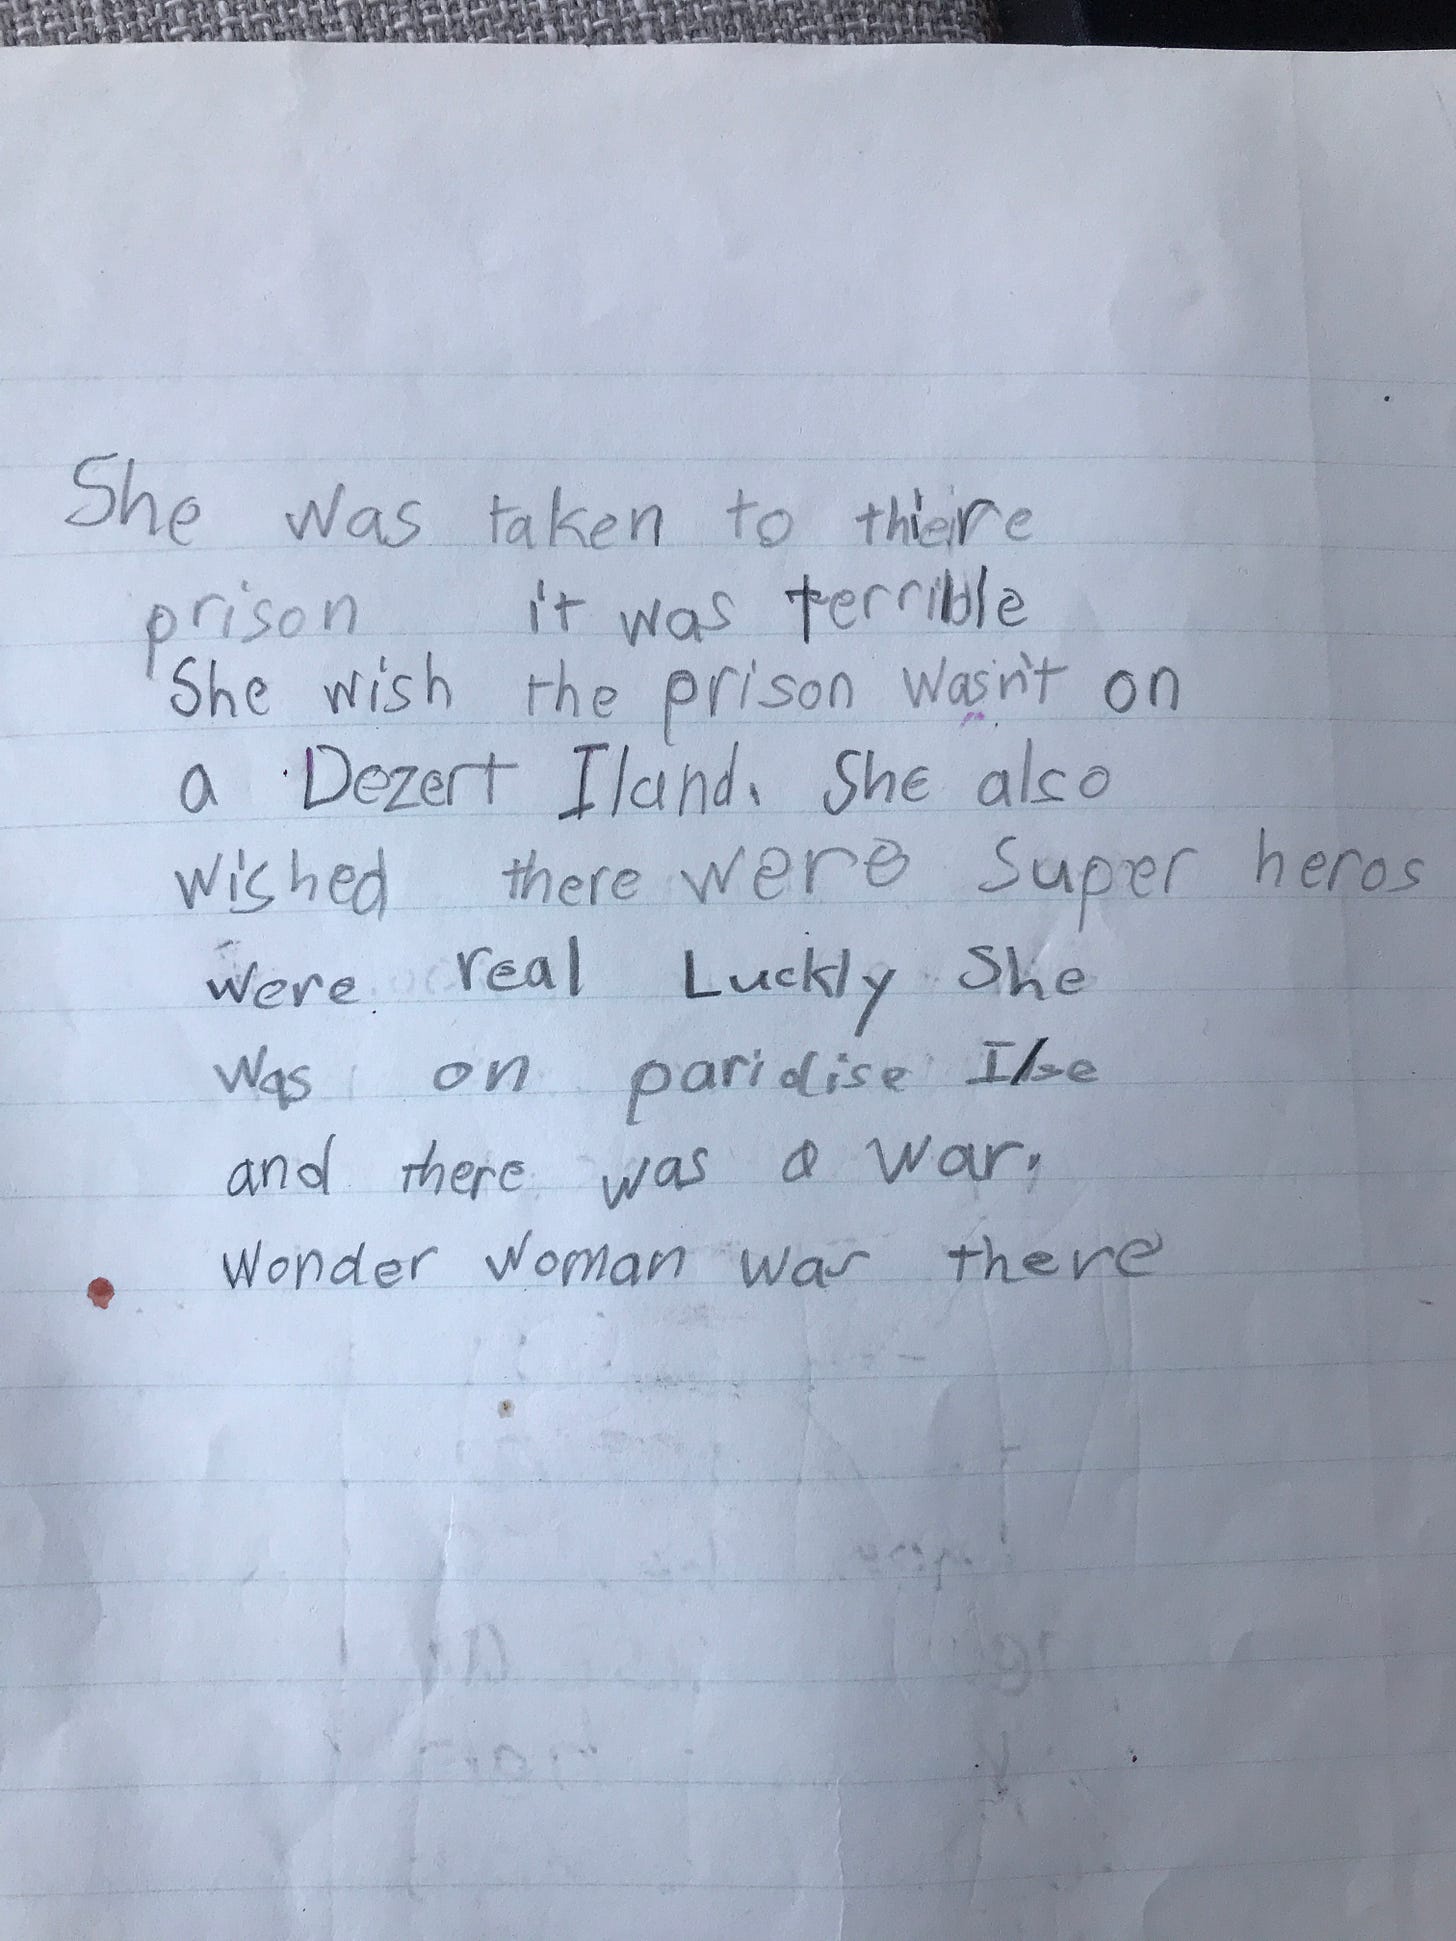 She was taken to thiere
prison it was terrible
She wish the prison wasn't on
a Dezert Iland. She also
wished there were super heros
were real Luckly She
was on paridise Ilse
and there was a war.
wonder woman was there